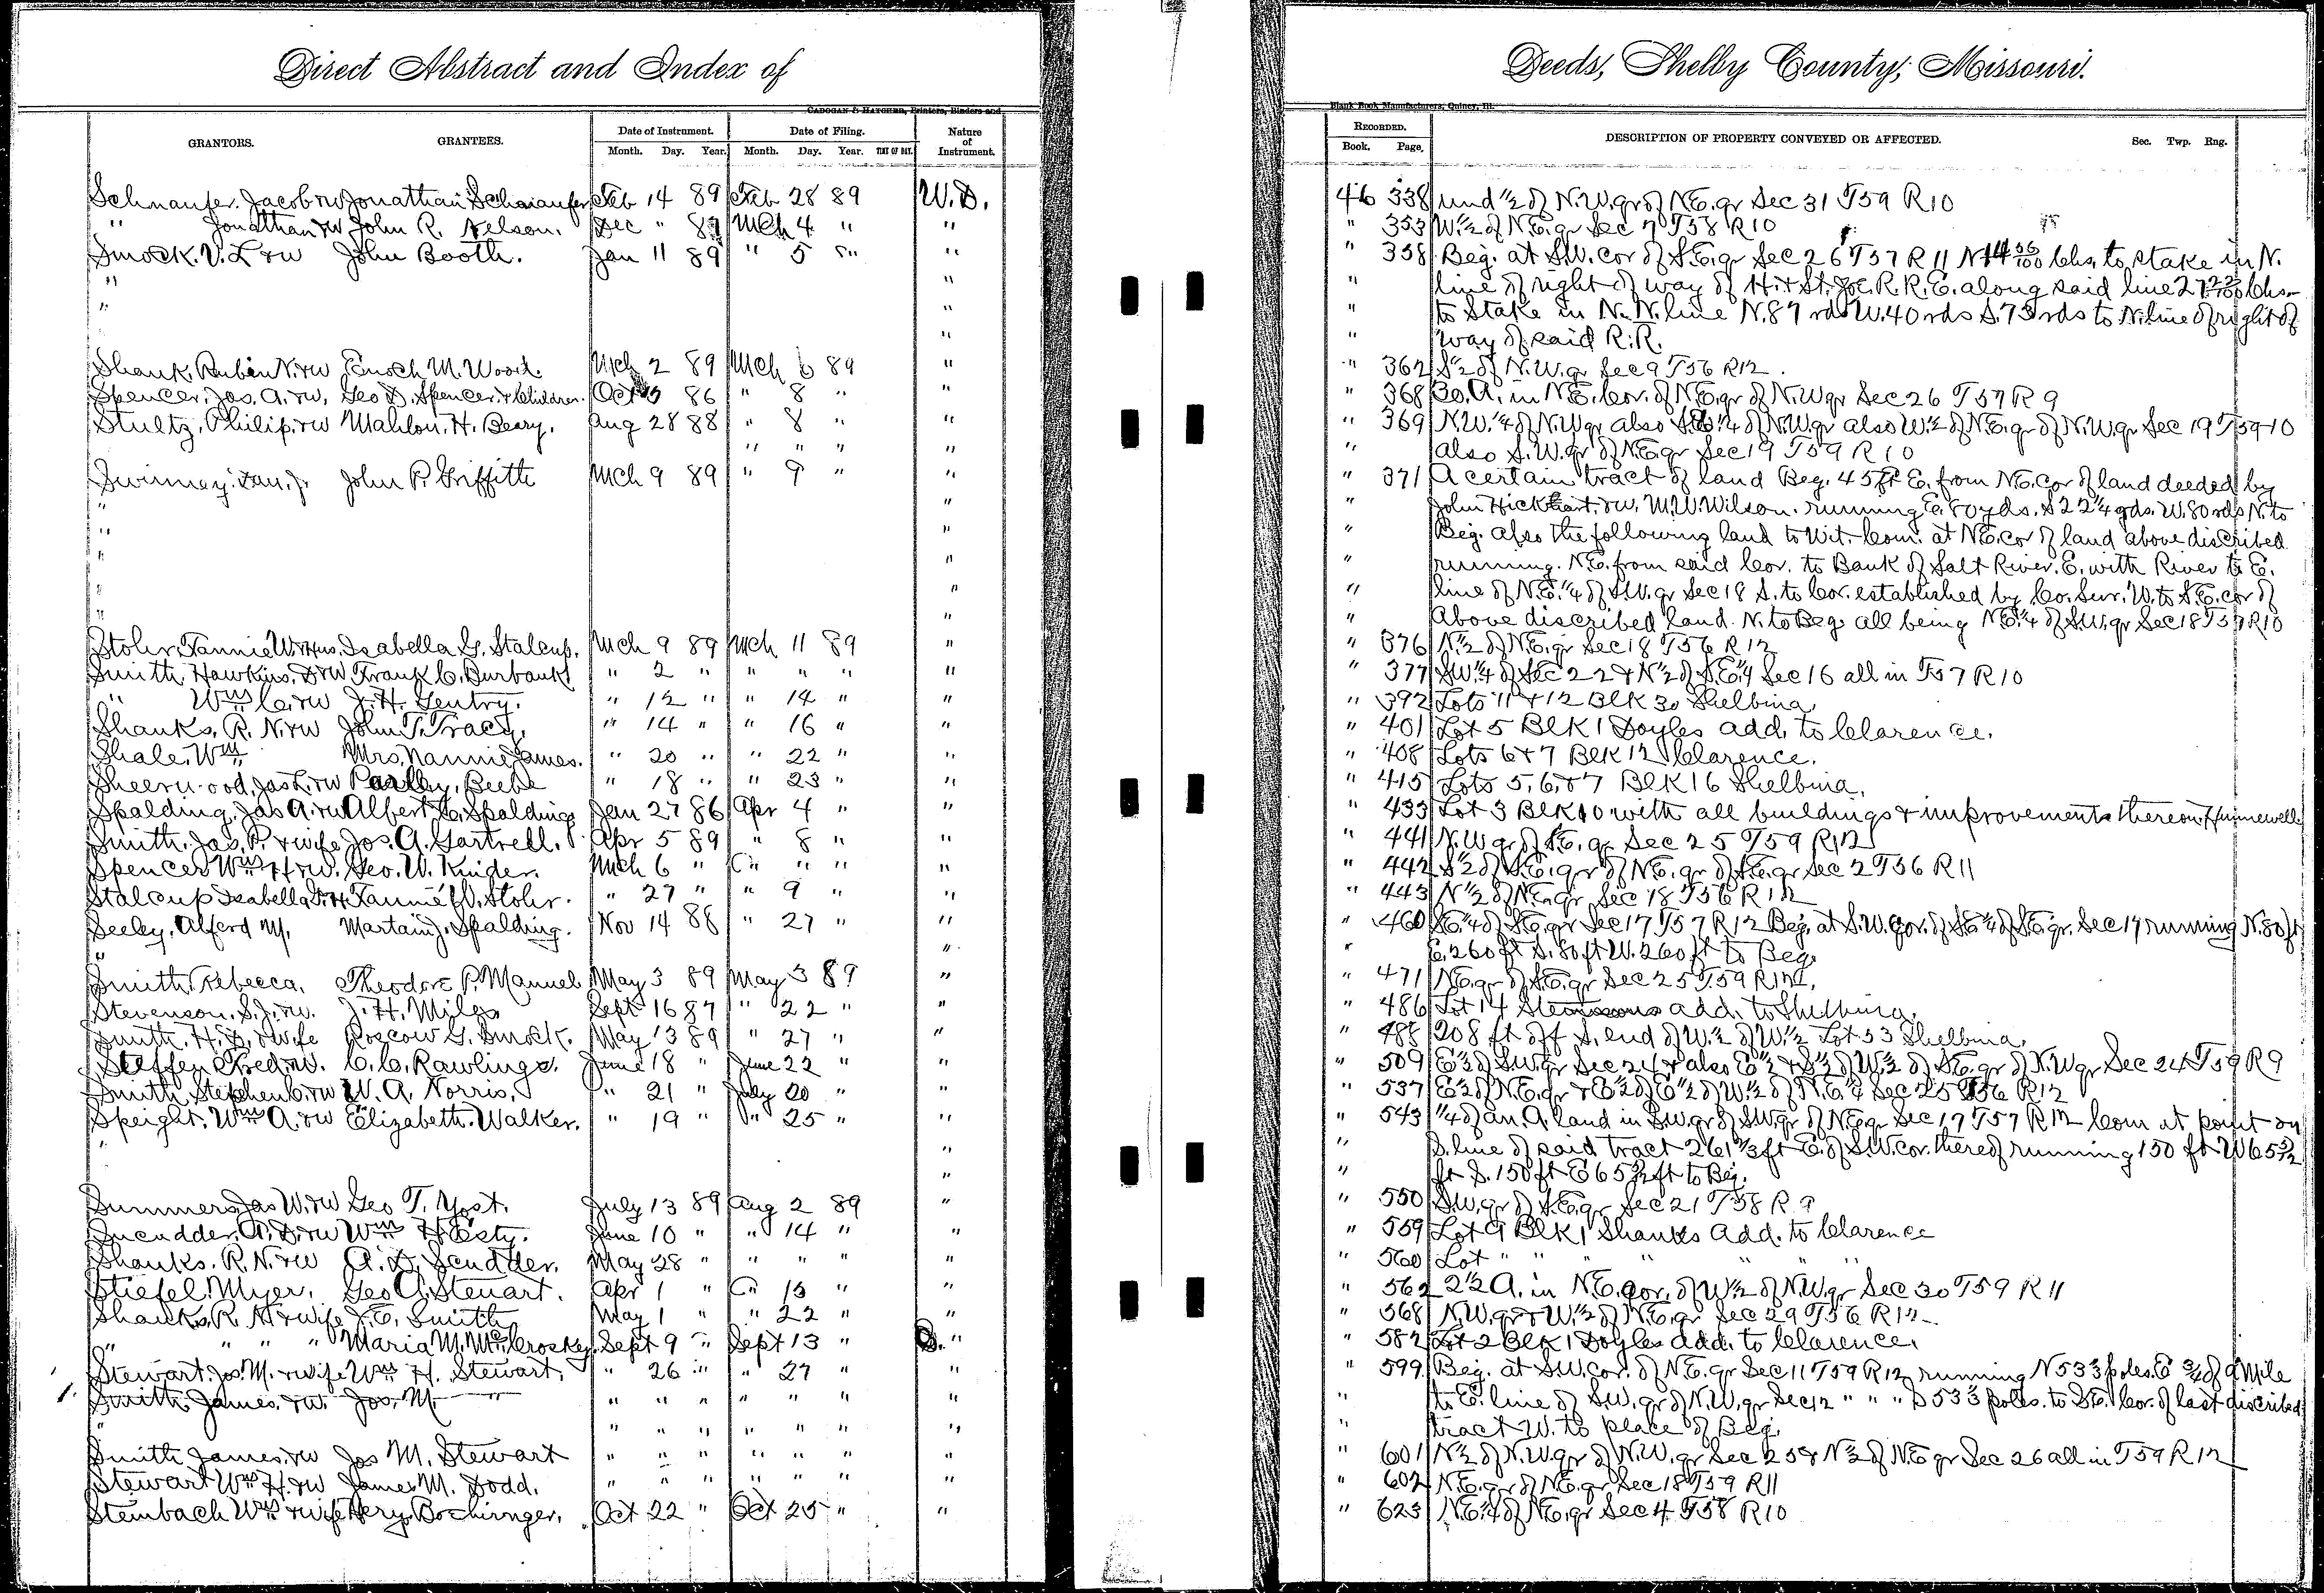 Direct Abstract and Index of
CADOGAN & HATCHER, Printers, Binders and
GRANTORS. GRANTEES. Date of Instrument. Date of Filing. Nature of Instrument.
Month. Day. Year. Month. Day. Year. TIME OF DAY.
Schnaufer, Jacob & w Jonathan Schnaufer Feb 14 89 Feb 28 89 W.D.
" Jonathan & w John R. Nelson. Dec " 87 Mch 4 " "
Smock. V. L & w John Booth. Jan 11 89 " 5 " "
" "
" "
"
Shank, Rubin N. & w Enoch M. Wood. Mch 2 89 Mch 6 89 "
Spencer, Jas. A. & w. Geo D. Spencer & Children. Oct 86 " 8 " "
Stultz, Philip & w Mahlon. H. Beary. Aug 28 88 " 8 " "
" " " "
Swinney, John P. Griffith Mch 9 89 " 9 " "
" "
" "
" "
" "
" "
Stohr, Fannie W. & Hus. Isabella G. Stalcup. Mch 9 89 Mch 11 89 "
Smith, Hawkins, D & w Frank C. Burbank " 2 " " " " "
" Wm C. & w J. H. Gentry. " 12 " " 14 " "
Shanks, R. N. & w John T. Tracy. " 14 " " 16 " "
Shale, Wm Mrs. Nannie James. " 20 " " 22 " "
Sheerwood, Jas L. & w Beebe " 18 " " 23 " "
Spalding, Jas A. & w Albert Spalding Jan 27 86 Apr 4 " "
Smith, Jas. P. & wife Jos. A. Gartrell. Apr 5 89 " 8 " "
Spencer Wm H & w. Geo. W. Kinder. Mch 6 " " " " "
Stalcup Isabella Fannie W. Stohr. " 27 " " 9 " "
Seeley, Alferd M. Martain J. Spalding. Nov 14 88 " 27 " "
" "
Smith, Rebecca, Theodore P. Manuel May 3 89 May 3 89 "
Stevenson, S. J. & w. J. H. Miles Sept 16 87 " 22 " "
Smith, H. D. & wife Roscow G. Smock. May 13 89 " 27 " "
Steffen Fred & w. C. C. Rawlings. June 18 " June 22 " "
Smith Stephen C. & w W. A. Norris. " 21 " July 20 " "
Speight, Wm A. & w Elizabeth Walker. " 19 " " 25 " "
" "
"
Summers, Jas W. & w Geo T. Yost. July 13 89 Aug 2 89 "
Scudder, A. D. & w Wm Hasty. June 10 " " 14 " "
Shanks. R. N. & w A. D. Scudder. May 28 " " " " "
Stiefel, Myer. Geo A. Steuart. Apr 1 " " 15 " "
Shanks, R. N. & wife J. E. Smith May 1 " " 22 " "
" " " Maria M. McCroskey. Sept 9 " Sept 13 " D. "
Stewart, Jos. M. & wife Wm H. Stewart. " 26 " " 27 " "
Smith James. & w. Jos. M. " " " " " " " "
" " " " " " " "
Smith James. & w Jos M. Stewart " " " " " " "
Stewart Wm H. & w James M. Dodd. " " " " " " "
Steinbach Wm & wife Hery. Bochringer. Oct 22 " Oct 25 " "
Deeds, Shelby County, Missouri.
Blank Book Manufacturers, Quincy, Ill.
RECORDED. DESCRIPTION OF PROPERTY CONVEYED OR AFFECTED. Sec. Twp. Rng.
Book. Page,
46 338 und ½ of N.W. qr of N.E. qr Sec 31 T59 R10
" 353 W.½ of N.E. qr Sec 7 T58 R10
" 358 Beg. at S.W. cor of S.E. qr Sec 26 T57 R11 N 14 56/100 Chs. to stake in N.
" line of right of way of H. & St. Joe. R.R. E. along said line 27 Chs.
" to Stake in N. N. line N. 87 rds W. 40 rds S. 73 rds to N. line of right of
" way of said R.R.
" 362 S½ of N.W. qr Sec 9 T56 R12.
" 368 30. A. in N.E. Cor. of N.E. qr of N.W qr Sec 26 T57 R9
" 369 N.W. ¼ of N.W qr also ¼ of N.W qr also W.½ of N.E. qr of N.W. qr Sec 19 T59-10
" also S.W. qr of N.E. qr Sec 19 T59 R10
" 371 A certain tract of land Beg. 45 ft E. from N.E. Cor of land deeded by
" John Hickhart. & w. M.W. Wilson. running E. 80 yds. S 22¼ yds. W. 80 rds N. to
" Beg. also the following land to Wit. Com. at N.E. cor of land above discribed
" running. N.E. from said Cor. to Bank of Salt River. E. with River to E.
" line of N.E. ¼ of S.W. qr Sec 18 S. to Cor. established by Co. Sur. W. to S.E. cor of
" Above discribed land. N. to Beg. all being N.E. ¼ of S.W. qr Sec 18 T57 R10
" 376 N.½ of N.E. qr Sec 18 T56 R12
" 377 S.W. ¼ of Sec 22 & N½ of S.E. ¼ Sec 16 all in T57 R10
" 392 Lots 11 & 12 BLK 30 Shelbina
" 401 Lot 5 BLK 1 Doyles add. to Clarence.
" 408 Lots 6 & 7 BLK 12 Clarence.
" 415 Lots 5, 6, & 7 BLK 16 Shelbina.
" 433 Lot 3 BLK 10 with all buildings & improvements thereon, Hunnewell
" 441 N.W qr of S.E. qr Sec 25 T59 R12
" 442 S½ of S.E. qr of N.E. qr of S.E. qr Sec 2 T56 R11
" 443 N½ of N.E. qr Sec 18 T56 R12
" 460 S.E. ¼ of S.E. qr Sec 17 T57 R12 Beg. at S.W. Cor. of S.E. ¼ of S.E. qr. Sec 17 running N. 80 ft
" E. 260 ft S. 80 ft W. 260 ft to Beg.
" 471 N.E. qr of S.E. qr Sec 25 T59 R12.
" 486 Lot 14 add. to Shelbina.
" 488 208 ft off S. end of W.½ of W.½ Lot 53 Shelbina
" 509 E½ of S.W. qr Sec 24 & also E½ & S½ of W.½ of S.E. qr of N.W qr Sec 24 T59 R9
" 537 E½ of N.E. qr & E½ of E½ of W.½ of N.E. ¼ Sec 25 T56 R12
" 543 ¼ of an. A. land in S.W. qr of S.W. qr of N.E. qr Sec 17 T57 R12 Com at point on
" S. line of said tract 261⅔ ft E. of S.W. cor. thereof running 150 ft W 65½
" ft S. 150 ft E 65½ ft to Beg.
" 550 S.W. qr of S.E. qr Sec 21 T58 R9
" 559 Lot 9 BLK 1 Shanks Add. to Clarence
" 560 Lot " " " " "
" 562 2½ A. in N.E. cor. of W½ of N.W. qr Sec 30 T59 R11
" 568 N.W. qr & W.½ of N.E. qr Sec 29 T56 R12
" 582 Lot 2 BLK 1 Doyles add. to Clarence.
" 599 Beg. at S.W. cor. of N.E. qr Sec 11 T59 R12 running N 53⅓ poles. E ¾ of a Mile
" to E. line of S.W. qr of N.W. qr Sec 12 " " " S 53⅓ poles. to S.E. Cor. of last discribed
" tract W. to place of Beg.
" 601 N½ of N.W. qr of N.W. qr Sec 25 & N½ of N.E qr Sec 26 all in T59 R12
" 602 N.E. qr of N.E. qr Sec 18 T59 R11
" 623 N.E. ¼ of N.E. qr Sec 4 T58 R10